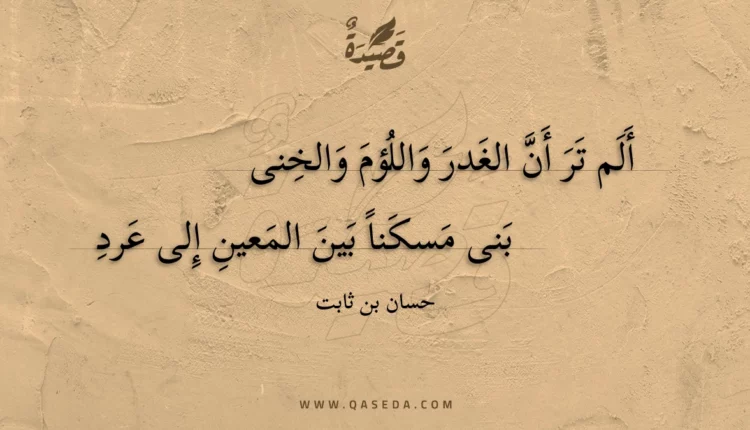 قَصِيْدَةٌ
أَلَم تَرَ أَنَّ الغَدرَ وَاللُؤمَ وَالخِنى
بَنى مَسكَناً بَينَ المَعينِ إِلى عَردِ
حسان بن ثابت
WWW.QASEDA.COM